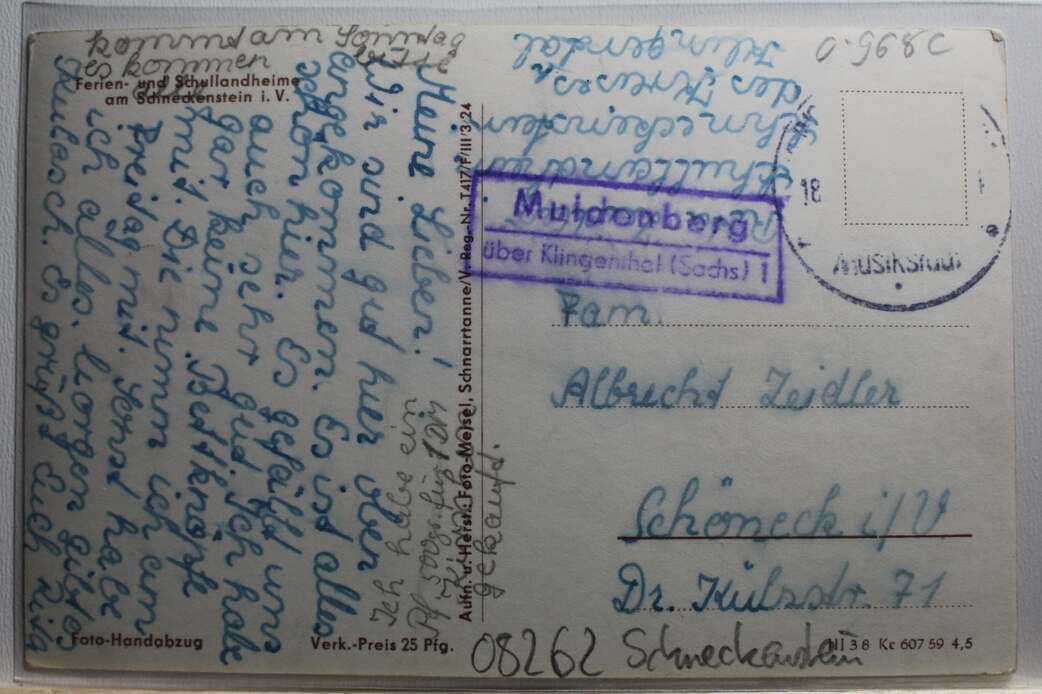 kommt am Sonntag
bitte
es kommen
Ferien- und Schullandheime
am Schneckenstein i. V.
Meine Lieben!
Wir sind gut hier oben
angekommen. Es ist alles
schon hier. Es gefällt uns
auch sehr gut. Ich habe
gar keine Bettknöpfe
mit. Die nimm ich am
Freitag mit. sonst habe
ich alles. Morgen gibts
Gulasch. Es grüßt Euch
Ich habe ein
für 1DM
gekauft.
Aufn. u. Herst.: Foto-Meisel, Schnarrtanne/V. Reg.-Nr. T417/F/III/3/24
Schullandheim
Schneckenstein
des Kreises
Klingental
0.5
Muldenberg
über Klingenthal (Sachs) 1
18
Musikstadt
Fam.
Albrecht Zeidler
Schöneck i/V
Dr. Külzstr. 71
Foto-Handabzug
Verk.-Preis 25 Pfg.
08262 Schneckenstein
III 3 8 Kc 607 59 4,5